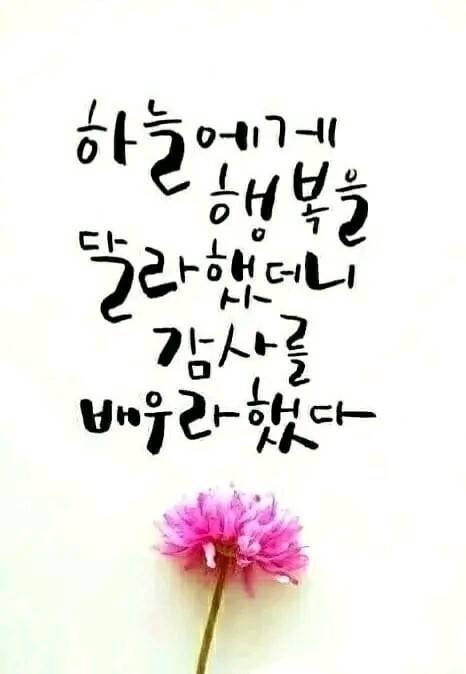 하늘에게
행복을
달라했더니
감사를
배우라했다